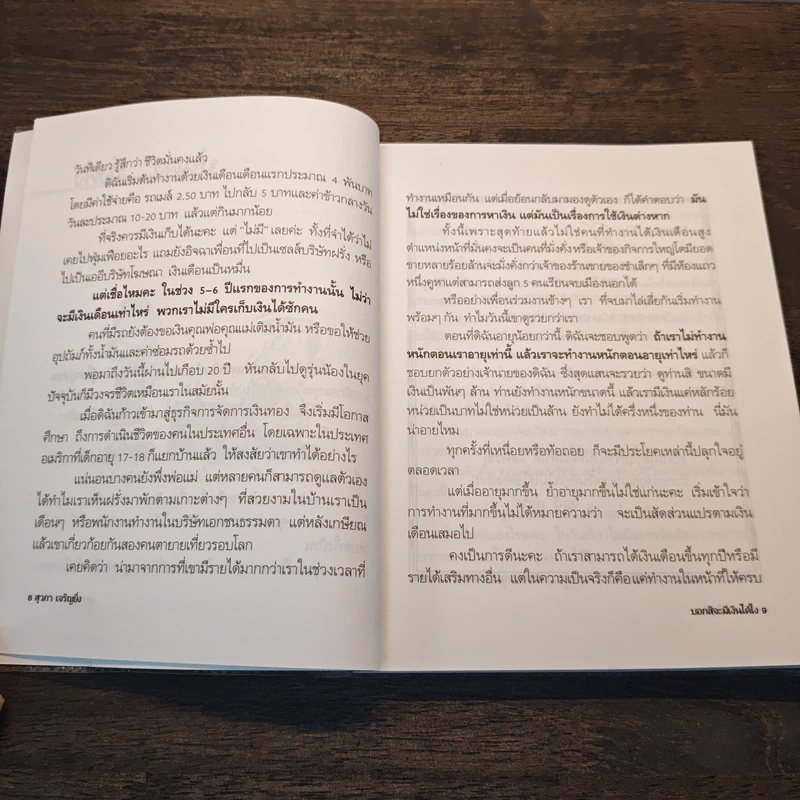 วันทีเดียว รู้สึกว่า ชีวิตมั่นคงแล้ว
ดิฉันเริ่มต้นทำงานด้วยเงินเดือนเดือนแรกประมาณ 4 พันบาท
โดยมีค่าใช้จ่ายคือ รถเมล์ 2.50 บาท ไปกลับ 5 บาทและค่าข้าวกลางวัน
วันละประมาณ 10-20 บาท แล้วแต่กินมากน้อย
ที่จริงควรมีเงินเก็บได้นะคะ แต่ "ไม่มี" เลยค่ะ ทั้งที่จำได้ว่าไม่
เคยไปฟุ่มเฟือยอะไร แถมยังอิจฉาเพื่อนที่ไปเป็นเซลส์บริษัทฝรั่ง หรือ
ไปเป็นเออีบริษัทโฆษณา เงินเดือนเป็นหมื่น
แต่เชื่อไหมคะ ในช่วง 5-6 ปีแรกของการทำงานนั้น ไม่ว่า
จะมีเงินเดือนเท่าไหร่ พวกเราไม่มีใครเก็บเงินได้ซักคน
คนที่มีรถยังต้องขอเงินคุณพ่อคุณแม่เติมน้ำมัน หรือขอให้ช่วย
อุปถัมภ์ทั้งน้ำมันและค่าซ่อมรถด้วยซ้ำไป
พอมาถึงวันนี้ผ่านไปเกือบ 20 ปี หันกลับไปดูรุ่นน้องในยุค
ปัจจุบันก็มีวงจรชีวิตเหมือนเราในสมัยนั้น
เมื่อดิฉันก้าวเข้ามาสู่ธุรกิจการจัดการเงินทอง จึงเริ่มมีโอกาส
ศึกษา ถึงการดำเนินชีวิตของคนในประเทศอื่น โดยเฉพาะในประเทศ
อเมริกาที่เด็กอายุ 17-18 ก็แยกบ้านแล้ว ให้สงสัยว่าเขาทำได้อย่างไร
แน่นอนบางคนยังพึ่งพ่อแม่ แต่หลายคนก็สามารถดูแลตัวเอง
ได้ทำไมเราเห็นฝรั่งมาพักตามเกาะต่างๆ ที่สวยงามในบ้านเราเป็น
เดือนๆ หรือพนักงานทำงานในบริษัทเอกชนธรรมดา แต่หลังเกษียณ
แล้วเขาเกี่ยวก้อยกันสองคนตายายเที่ยวรอบโลก
เคยคิดว่า น่ามาจากการที่เขามีรายได้มากกว่าเราในช่วงเวลาที่
8 สุวภา เจริญยิ่ง
ทำงานเหมือนกัน แต่เมื่อย้อนกลับมามองดูตัวเอง ก็ได้คำตอบว่า มัน
ไม่ใช่เรื่องของการหาเงิน แต่มันเป็นเรื่องการใช้เงินต่างหาก
ทั้งนี้เพราะสุดท้ายแล้วไม่ใช่คนที่ทำงานได้เงินเดือนสูง
ตำแหน่งหน้าที่มั่นคงจะเป็นคนที่มั่งคั่งหรือเจ้าของกิจการใหญ่โตมียอด
ขายหลายร้อยล้านจะมั่งคั่งกว่าเจ้าของร้านขายของชำเล็กๆ ที่มีห้องแถว
หนึ่งคูหาแต่สามารถส่งลูก 5 คนเรียนจบเมืองนอกได้
หรืออย่างเพื่อนร่วมงานช้างๆ เรา ที่จบมาไล่เลี่ยกันเริ่มทำงาน
พร้อมๆ กัน ทำไมวันนี้เขาดูรวยกว่าเรา
ตอนที่ดิฉันอายุน้อยกว่านี้ ดิฉันจะชอบพูดว่า ถ้าเราไม่ทำงาน
หนักตอนเราอายุเท่านี้ แล้วเราจะทำงานหนักตอนอายุเท่าไหร่ แล้วก็
ชอบยกตัวอย่างเจ้านายของดิฉัน ซึ่งสุดแสนจะรวยว่า ดูท่านสิ ขนาดมี
เงินเป็นพันๆ ล้าน ท่านยังทำงานหนักขนาดนี้ แล้วเรามีเงินแค่หลักร้อย
หน่วยเป็นบาทไม่ใช่หน่วยเป็นล้าน ยังทำไม่ได้ครึ่งหนึ่งของท่าน นี่มัน
น่าอายไหม
ทุกครั้งที่เหนื่อยหรือท้อถอย ก็จะมีประโยคเหล่านี้ปลุกใจอยู่
ตลอดเวลา
แต่เมื่ออายุมากขึ้น ย้ำอายุมากขึ้นไม่ใช่แก่นะคะ เริ่มเข้าใจว่า
การทำงานที่มากขึ้นไม่ได้หมายความว่า จะเป็นสัดส่วนแปรตามเงิน
เดือนเสมอไป
คงเป็นการดีนะคะ ถ้าเราสามารถได้เงินเดือนขึ้นทุกปีหรือมี
รายได้เสริมทางอื่น แต่ในความเป็นจริงก็คือแค่ทำงานในหน้าที่ให้ครบ
บอกสิจะมีเงินได้ไง 9